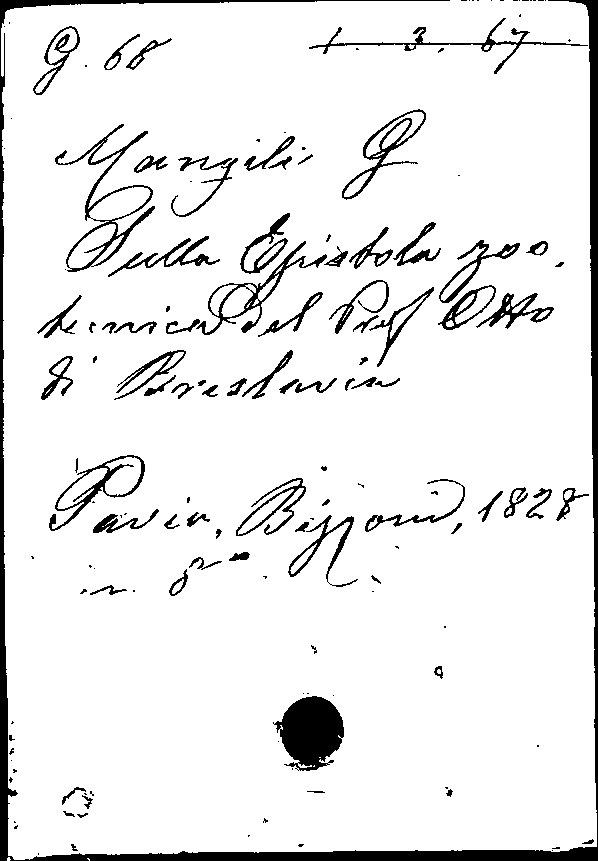 G. 68 1. 3. 67
Mangili G
Sulla Epistola zoo.
tecnica del Prof Otto
di Breslavia
Pavia, Bizzoni, 1828
in 8°